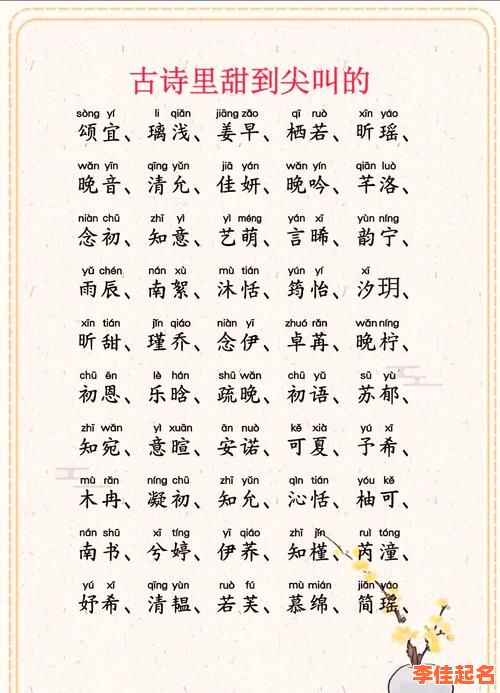 古诗里甜到尖叫的
sòng yí li qiǎn jiāng zǎo qī ruò xīn yáo
颂宜、璃浅、姜早、栖若、昕瑶、
wǎn yīn qīng yǔn jiā yán wǎn yín qiān luò
晚音、清允、佳妍、晚吟、芊洛、
niàn chū zhī yì yì méng yán xī yùn níng
念初、知意、艺萌、言晞、韵宁、
yǔ chén nán xù mù tián yún yí xī
雨辰、南絮、沐恬、筠怡、汐玥、
xīn tián jǐn qiáo niàn yī zhuó rǎn wǎn níng
昕甜、瑾乔、念伊、卓苒、晚柠、
chū ēn lè hán shū wǎn chū yǔ sū yù
初恩、乐晗、疏晚、初语、苏郁、
zhī wǎn yì xuān ān nuò kě xià yú xī
知宛、意暄、安诺、可夏、予希、
mù rǎn níng chū zhī yǔn qìn tián yóu kě
木冉、凝初、知允、沁恬、柚可、
nán shū xī tíng yī qiáo zhī jǐn ruì tóng
南书、兮婷、伊荞、知槿、芮潼、
yú xī qīng yùn ruò fú mù mián jiǎn yáo
妤希、清韫、若芙、慕绵、简瑶、
李佳起名